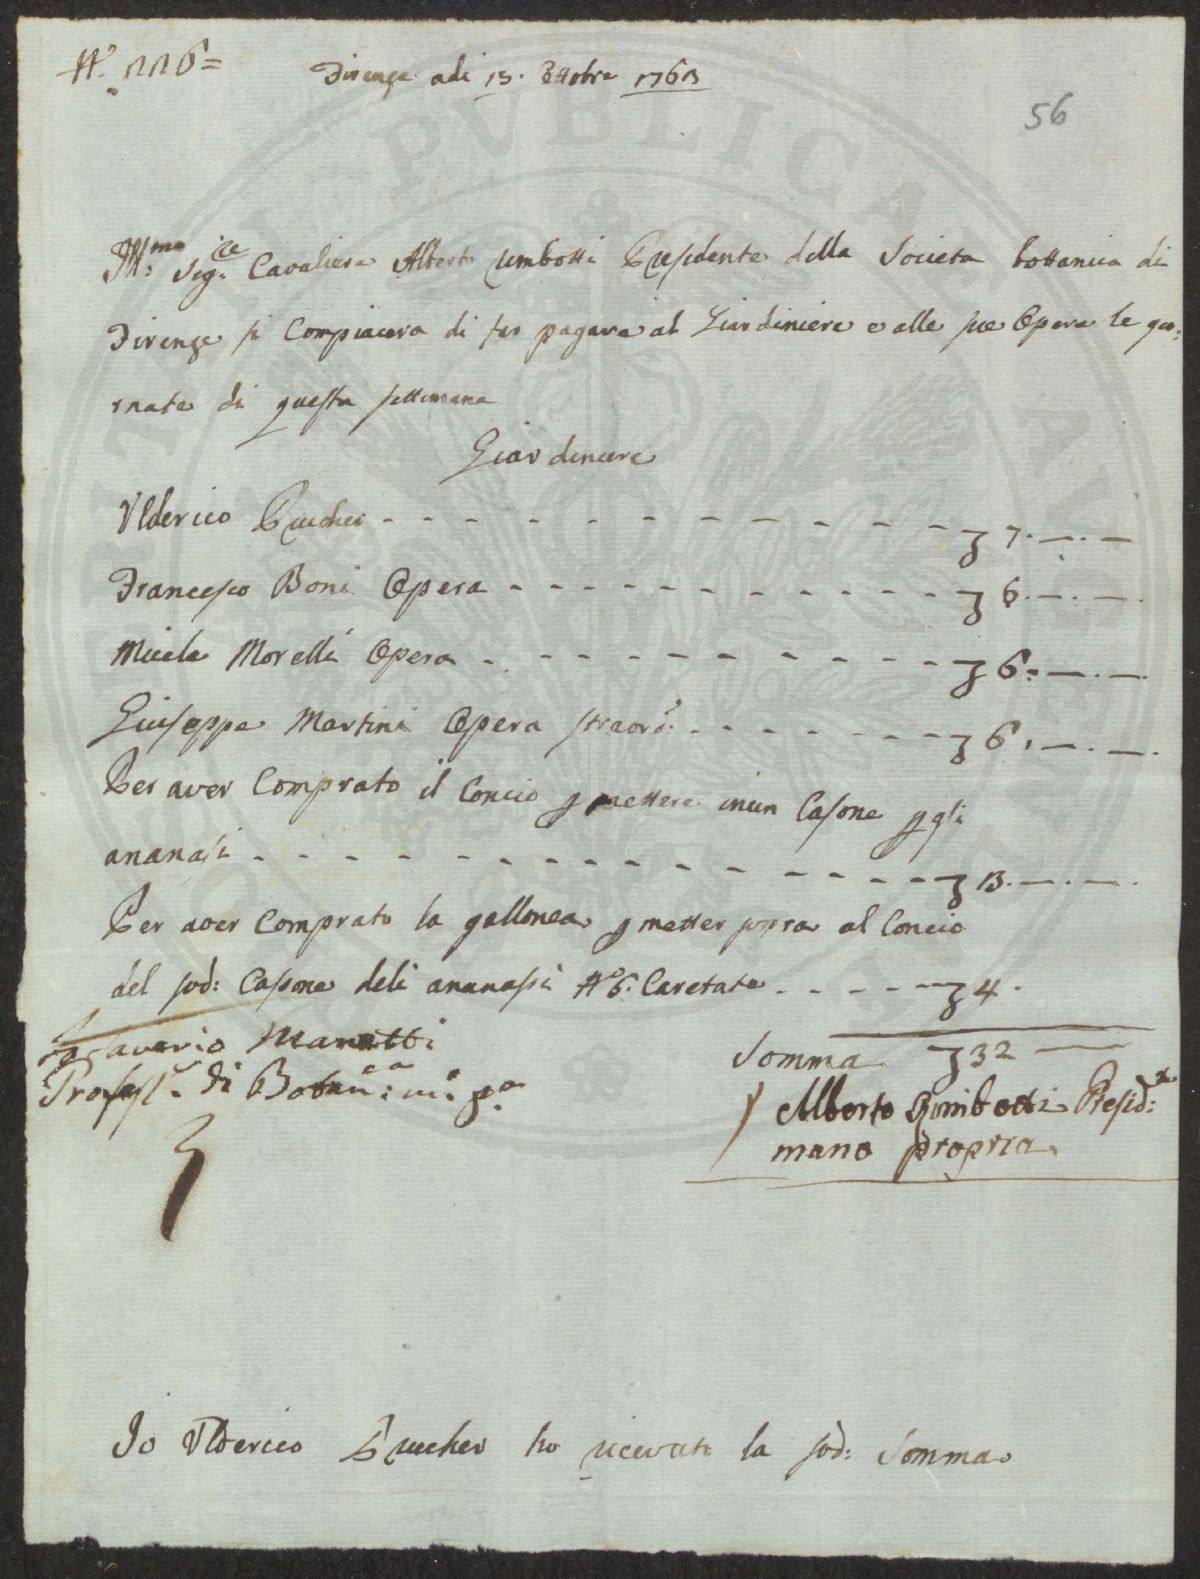 N.° 116=
Firenze adi 15. Ottobre 1763
56
Ill:mo Sig:re Cavaliere Alberto Rimbotti Presidente della Società bottanica di
Firenze si Compiacera di far pagare al Giardiniere e alle sue Opere le gio:
rnate di questa settimana
Giardiniere
Vlderico Prucher - - - - - - - - - - - - 7. — . —
Francesco Boni Opera - - - - - - - - - - 6. — . —
Micele Morelli Opera - - - - - - - - - 6. — . —
Giuseppe Martini Opera straord: - - - - - - - 6. — . —
Per aver Comprato il Concio p mettere in un Casone p gli
ananasi - - - - - - - - - - - - - 3. — . —
Per aver Comprato la gallonea p metter sopra al Concio
del sod: Casone deli ananassi N° 6. Caretate - - - - - 4.
Somma 32 —
Saverio Manetti
Profess.re di Botan.ca: m.o p.a
Alberto Rimbotti Presid:te
mano propria
Io Vlderico Prucher ho ricevuto la sod: Somma
POSTERITATI PVBLICAE